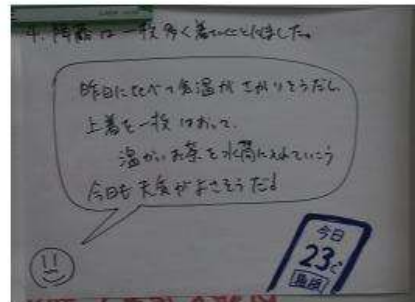 4. 降路は一枚多く着ていくことにしました。
昨日に比べて気温がさがりそうだし
上着を一枚はおって、
温かいお茶を水筒に入れていこう
今日も天気がよさそうだよ
今日
23℃